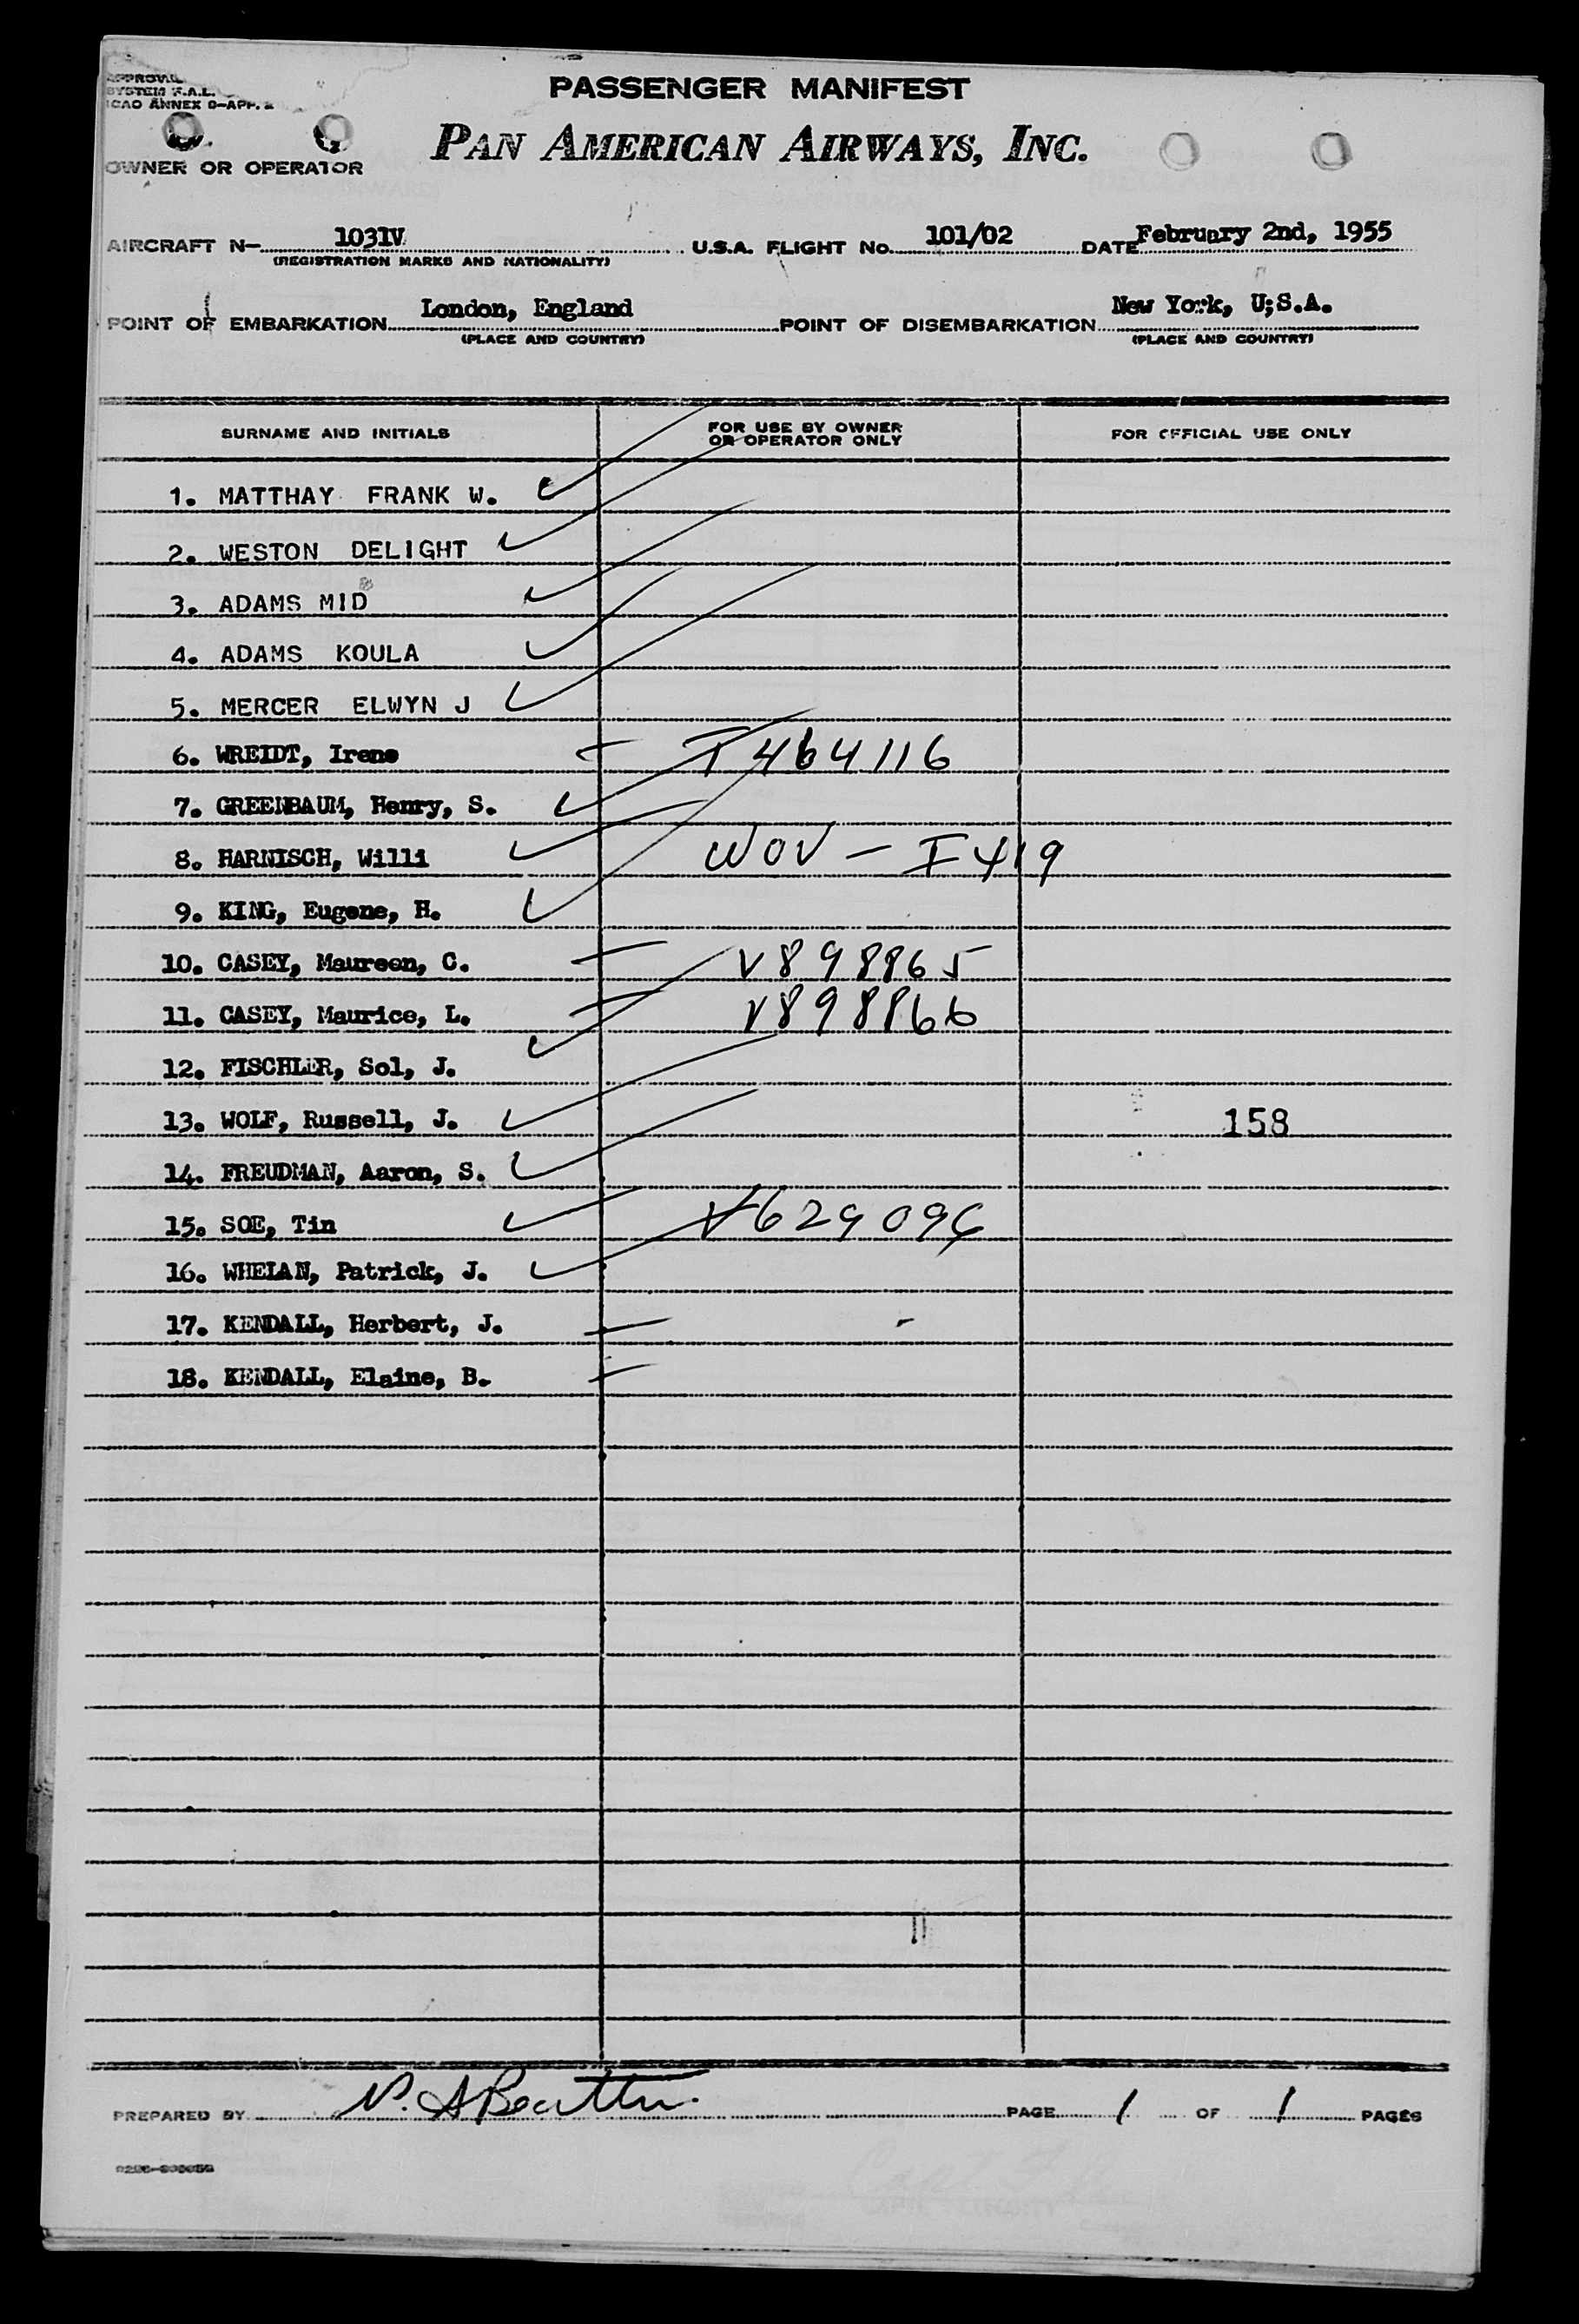 APPROVAL
SYSTEM F.A.L.
ICAO ANNEX 9-APP. 2
PASSENGER MANIFEST
PAN AMERICAN AIRWAYS, INC.
OWNER OR OPERATOR
AIRCRAFT N- 1031V U.S.A. FLIGHT No. 101/02 DATE February 2nd, 1955
(REGISTRATION MARKS AND NATIONALITY)
POINT OF EMBARKATION London, England POINT OF DISEMBARKATION New York, U;S.A.
(PLACE AND COUNTRY) (PLACE AND COUNTRY)
SURNAME AND INITIALS FOR USE BY OWNER OR OPERATOR ONLY FOR OFFICIAL USE ONLY
1. MATTHAY FRANK W.
2. WESTON DELIGHT
3. ADAMS MID
4. ADAMS KOULA
5. MERCER ELWYN J
6. WREIDT, Irene I 464116
7. GREENBAUM, Henry, S.
8. HARNISCH, Willi WOV - I 419
9. KING, Eugene, H.
10. CASEY, Maureen, C. V898865
11. CASEY, Maurice, L. V898866
12. FISCHLER, Sol, J.
13. WOLF, Russell, J. 158
14. FREUDMAN, Aaron, S.
15. SOE, Tin V629096
16. WHELAN, Patrick, J.
17. KENDALL, Herbert, J.
18. KENDALL, Elaine, B.
PREPARED BY PAGE 1 OF 1 PAGES